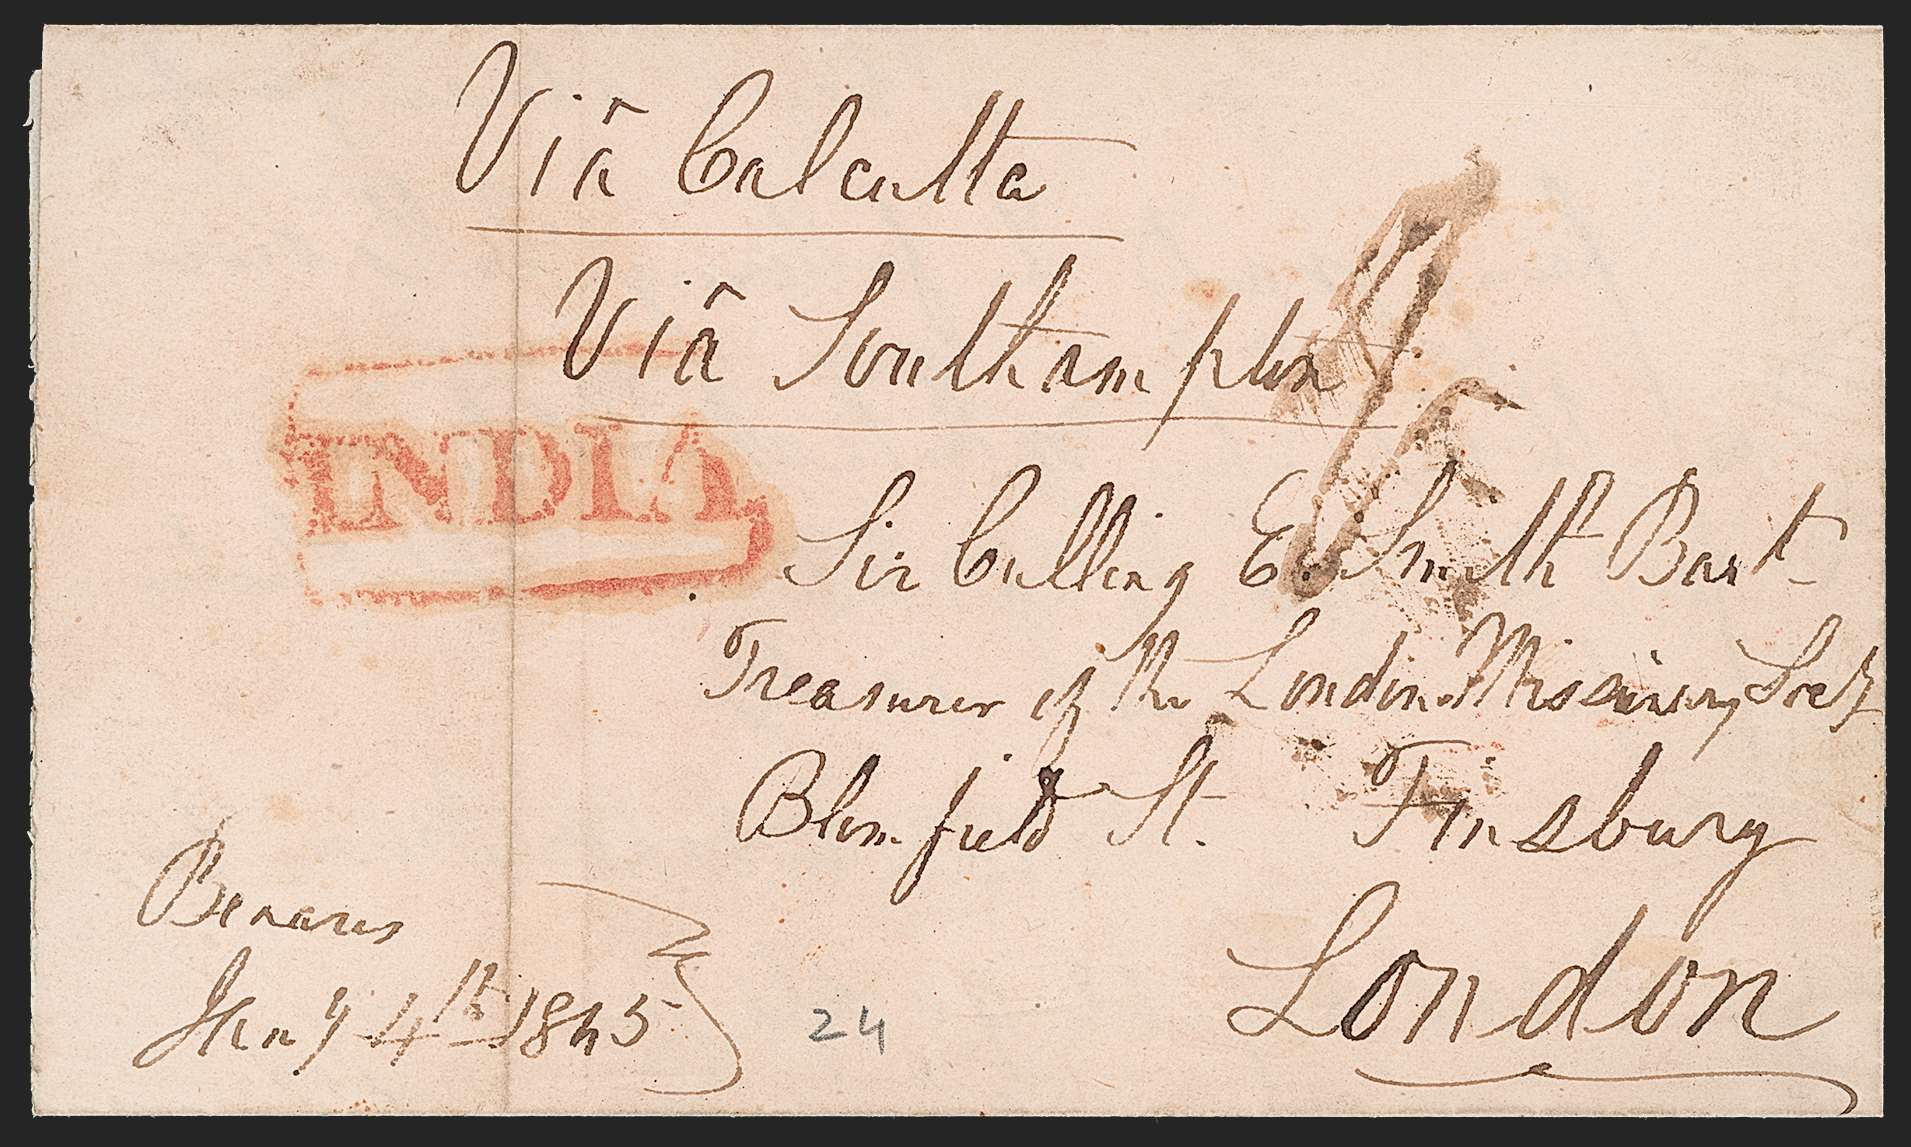 Viâ Calcutta
Viâ Southampton
INDIA
Sir Culling E. Smith Bart
Treasurer of the London Missionary Socy
Blomfield St. Finsbury
London
Benares
Jany 4th 1845
24